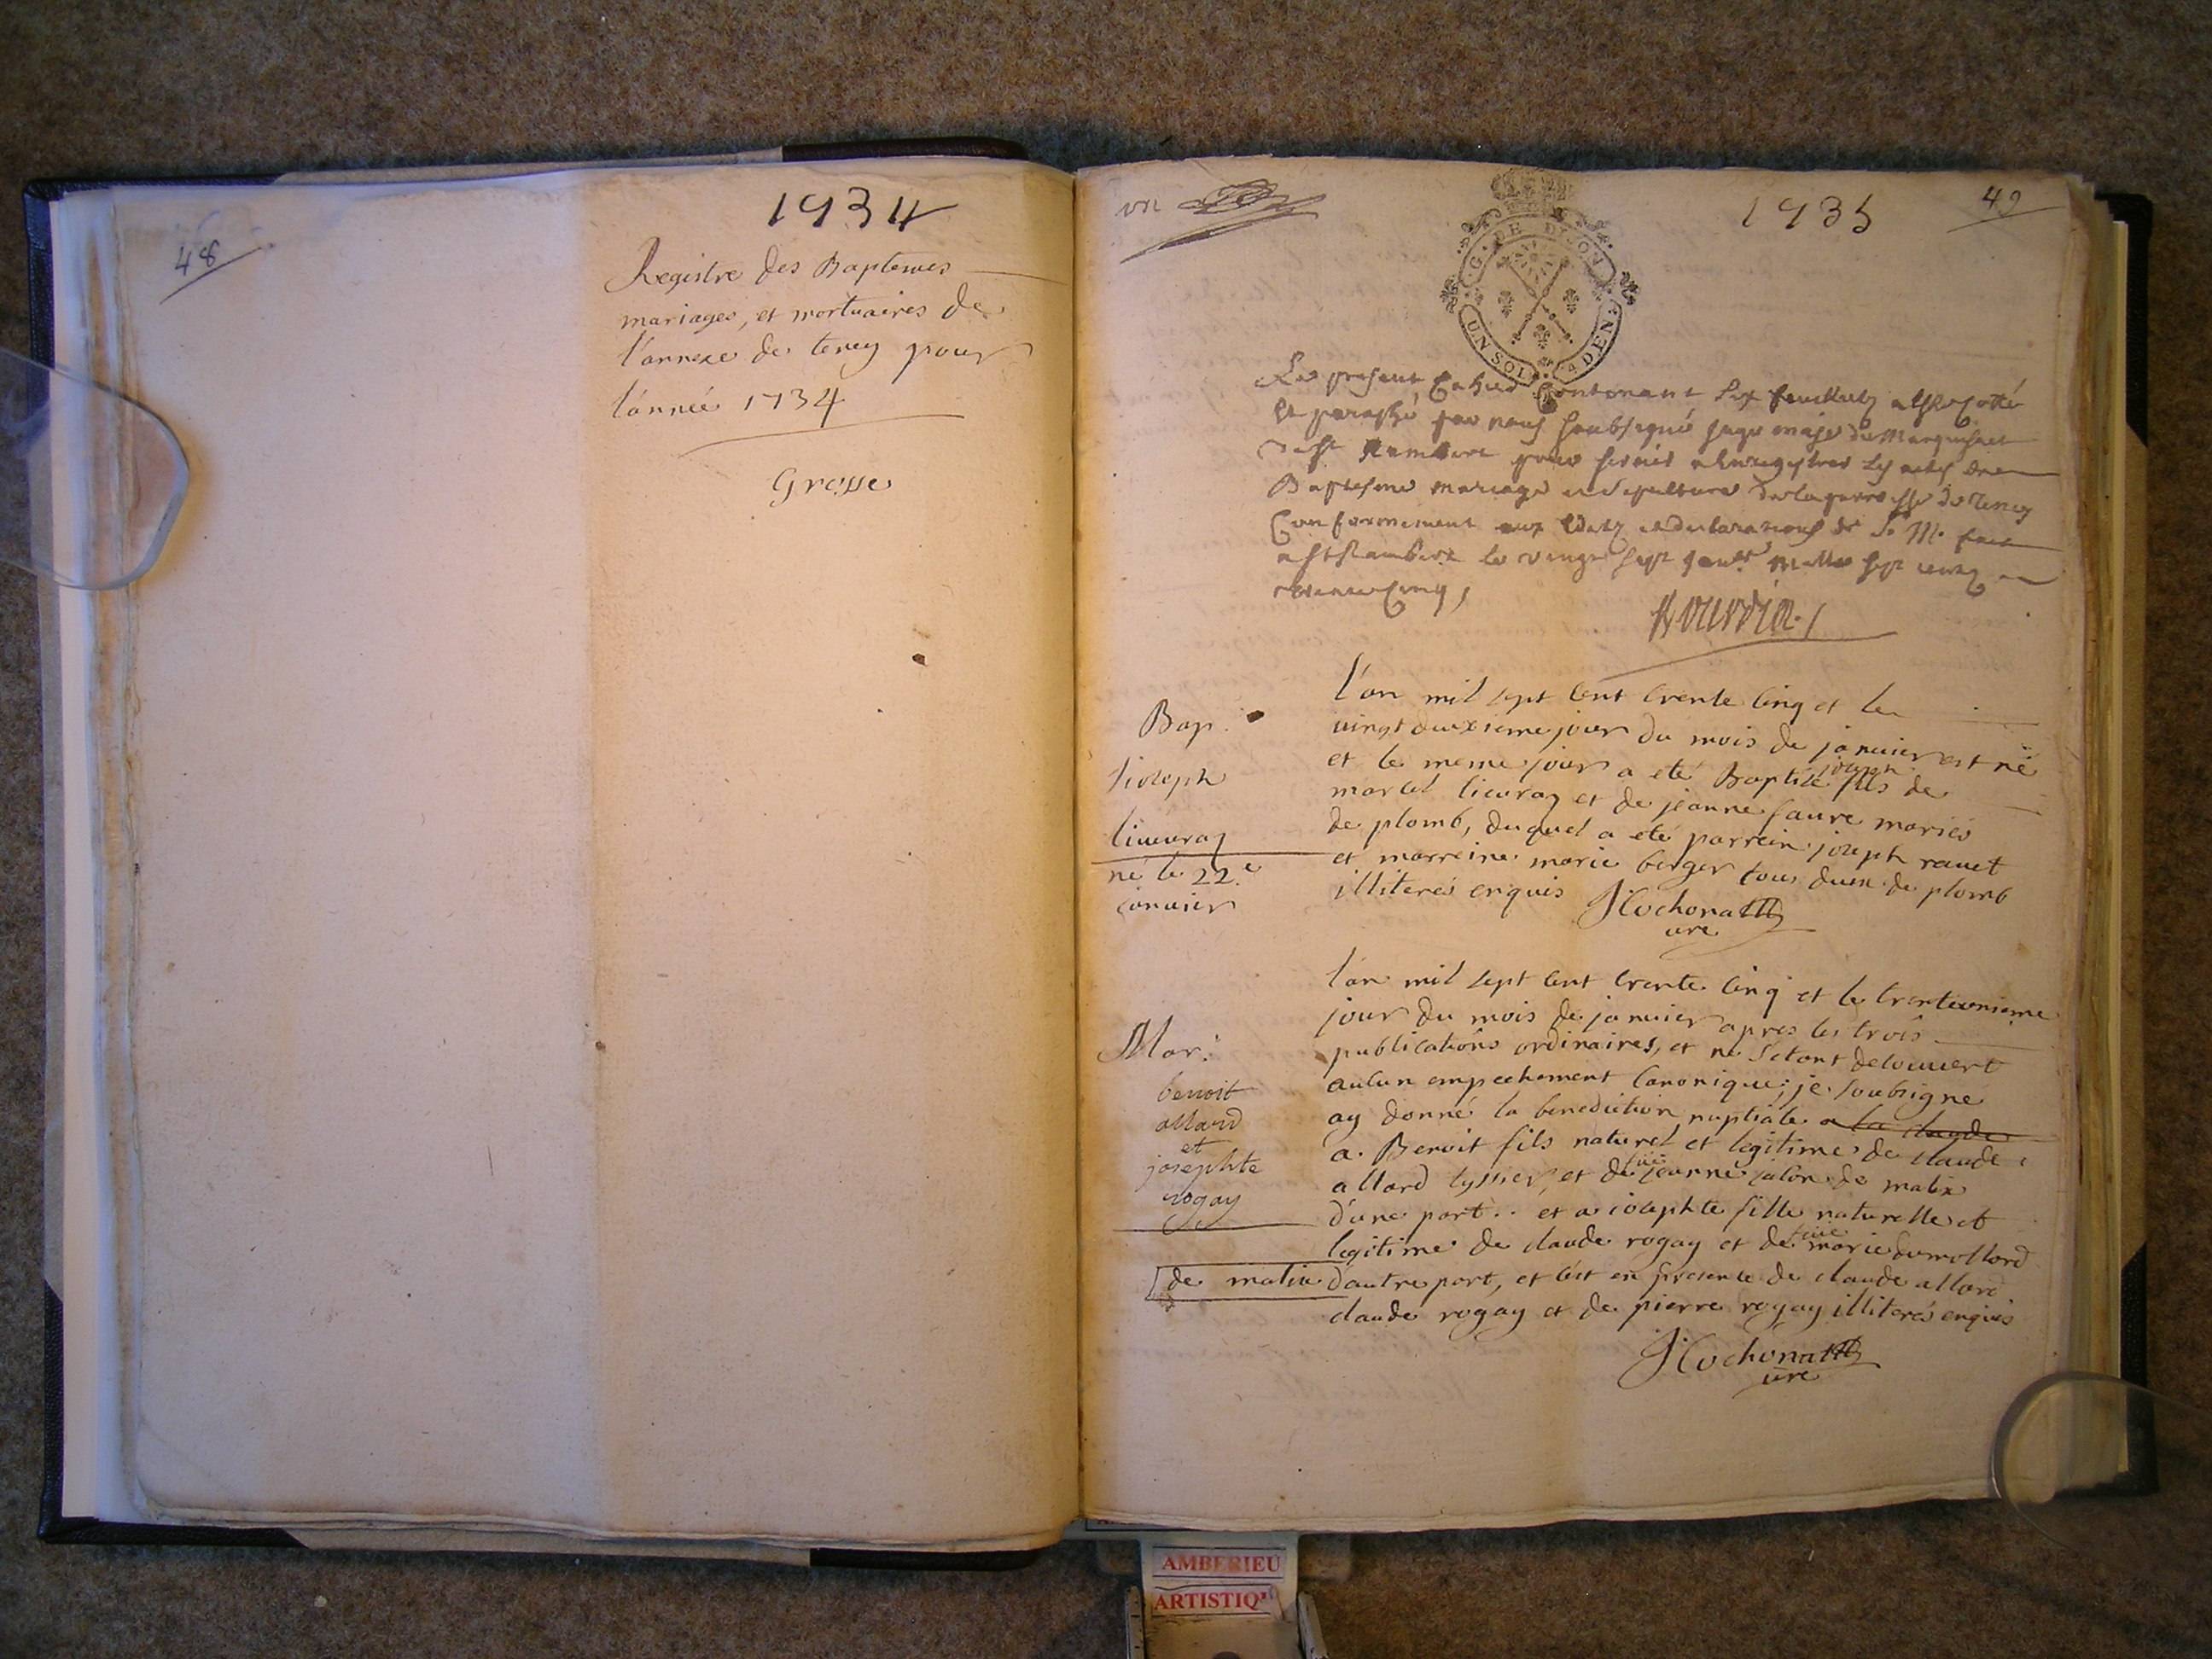 48
1734
Registre des Baptemes
mariages, et mortuaires de
l'annexe de tenay pour
l'année 1734
Grosse
un
1735
49
G. DE DIJON
UN SOL 4 DEN
Le present Cahier Contenant six feuillets a esté Cotté
et paraphé par nous soubsigné juge maje du Marquisat
de st Rambert pour servir a enregistrer les actes de
Baptesme mariage et sepulture de la parroisse de Tenay
Conformement aux Edits et declarations de S. M. fait
a st Rambert le vingt sept janvr mille sept cents
trente Cinq
Bap.
l'an mil sept cent trente cinq et le
vingt deuxieme jour du mois de janvier est né
joseph
et le meme jour a eté Baptisé joseph fils de
marcel lieuray et de jeanne faure mariés
lieuvray
de plomb, duquel a eté parrein joseph ravet
né le 22.e
et marreine marie berger tous deux de plomb
janvier
illiterés enquis JCochonatt
ure
l'an mil sept cent trente cinq et le trenteunieme
jour du mois de janvier apres les trois
Mar:
publications ordinaires, et ne s'etant decouvert
benoit
aucun empechement canonique; je soubsigne
allard
ay donné la benediction nuptiale a la claude
et
a Benoit fils naturel et legitime de claude
josephte
allard tyssier, et de fue jeanne jalon de malix
rogay
d'une part.. et a josephte fille naturelle et
legitime de claude rogay et de fue marie dumollard
de malix d'autre part, et c'est en presence de claude allard
claude rogay et de pierre rogay illiterés enquis
JCochonatt
ure
AMBERIEU
ARTISTIQ